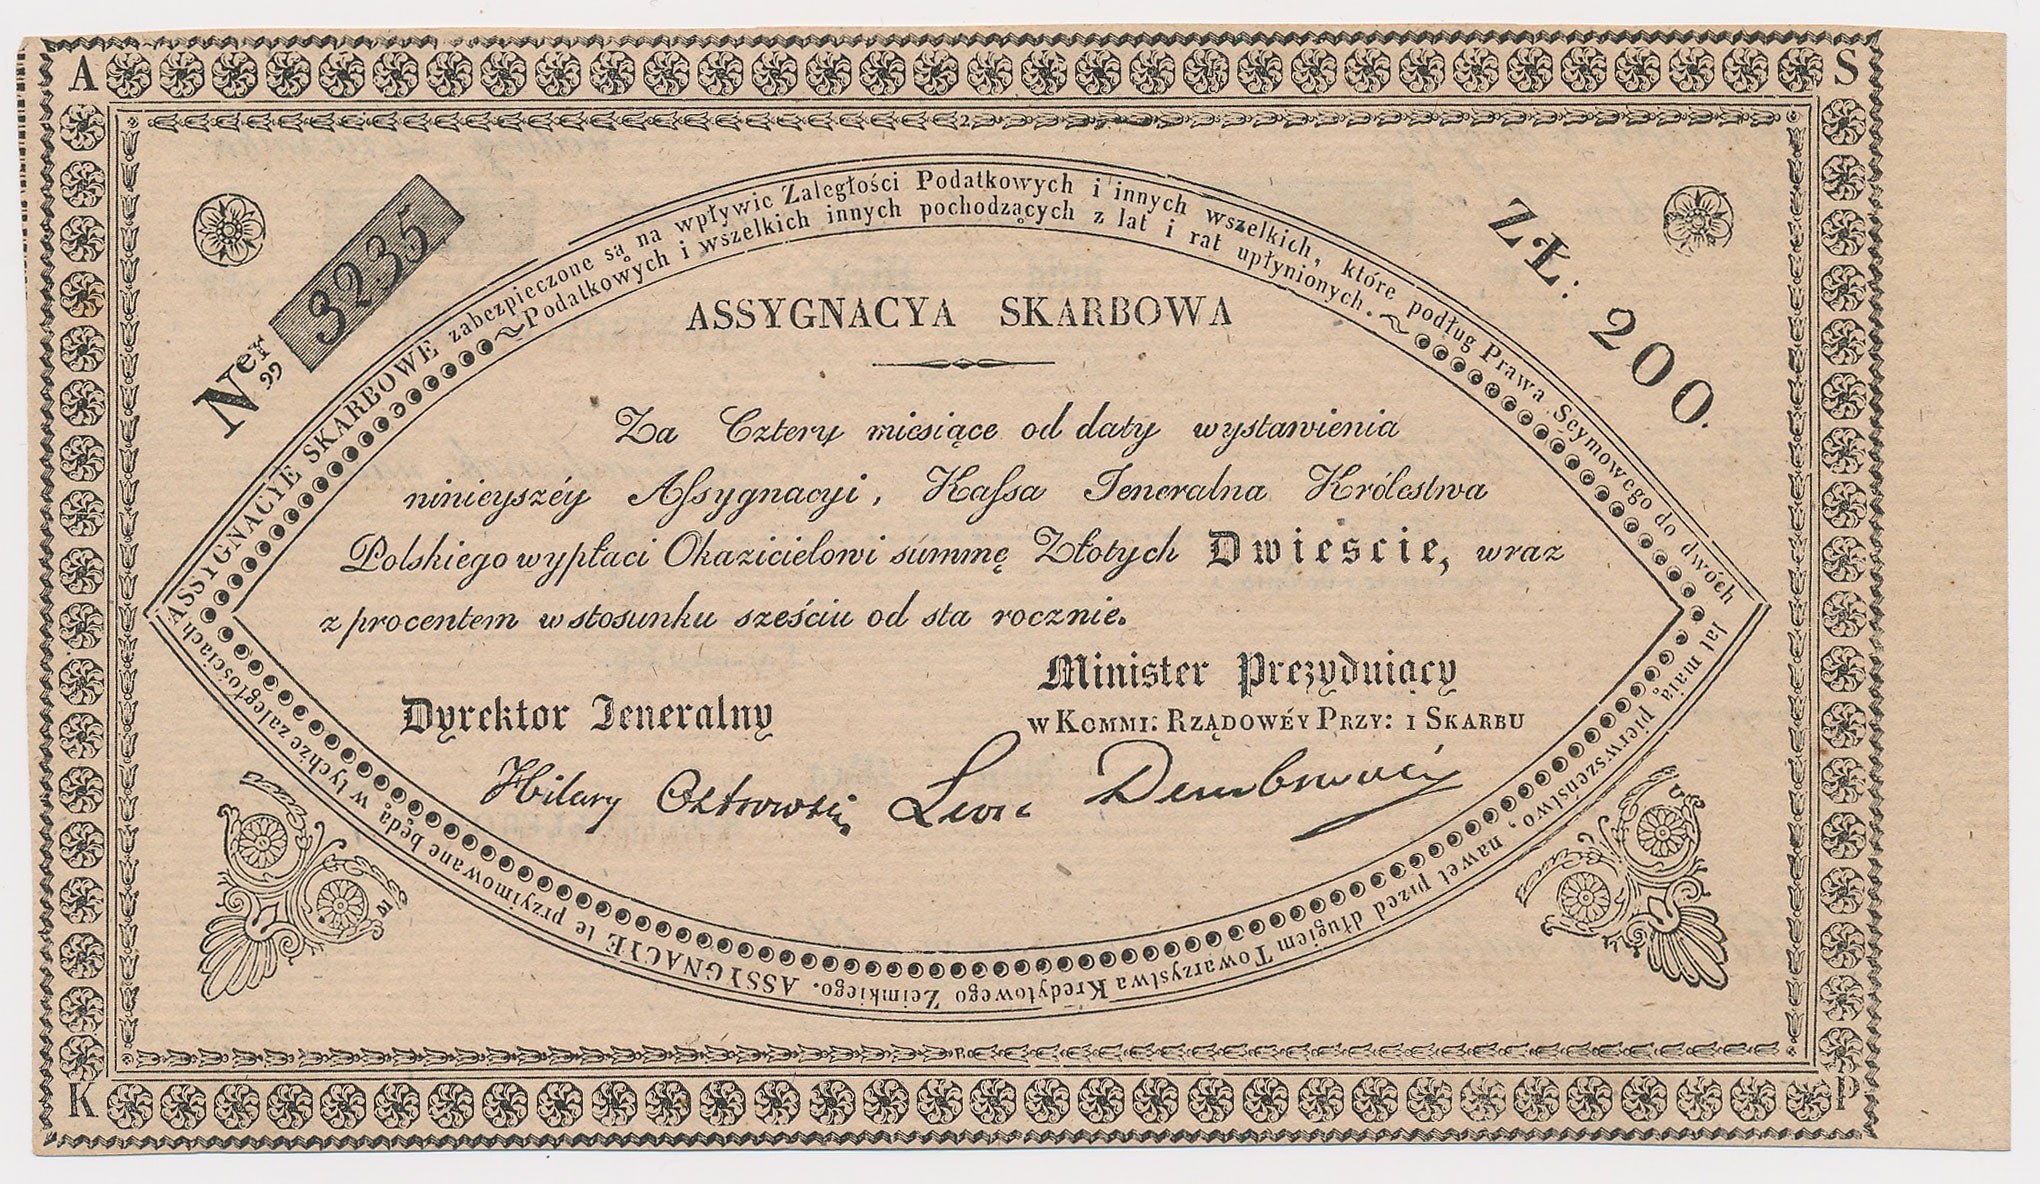 A S
Ner 3235
ZŁ: 200.
ASSYGNACYE SKARBOWE zabezpieczone są na wpływie Zaległości Podatkowych i innych wszelkich, które podług Prawa Seymowego do dwóch
lat maią pierwszeństwo, nawet przed długiem Towarzystwa Kredytowego Zeimkiego. ASSYGNACYE te przyimowane będą w tychże zaległościach
Podatkowych i wszelkich innych pochodzących z lat i rat upłynionych.
ASSYGNACYA SKARBOWA
Za Cztery miesiące od daty wystawienia
ninieyszéy Assygnacyi, Kassa Jeneralna Królestwa
Polskiego wypłaci Okazicielowi summę Złotych Dwieście, wraz
z procentem w stosunku sześciu od sta rocznie.
Minister Prezyduiący
Dyrektor Jeneralny
w Kommi: Rządowéy Przy: i Skarbu
Hilary Ostrowski Leon Dembowski
K P